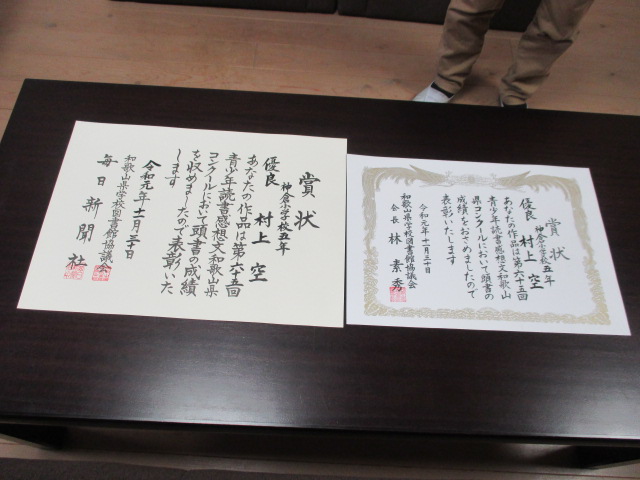 賞状
優良
神倉小学校五年
村上 空
あなたの作品は第六五回
青少年読書感想文和歌山県
コンクールにおいて頭書の成績
を収めましたので表彰いた
します
令和元年十一月三十日
和歌山県学校図書館協議会
毎日新聞社
賞状
優良
神倉小学校五年
村上 空
あなたの作品は第六十五回
青少年読書感想文和歌山
県コンクールにおいて頭書の
成績をおさめましたので
表彰いたします
令和元年十一月三十日
和歌山県学校図書館協議会
会長 林 素秀